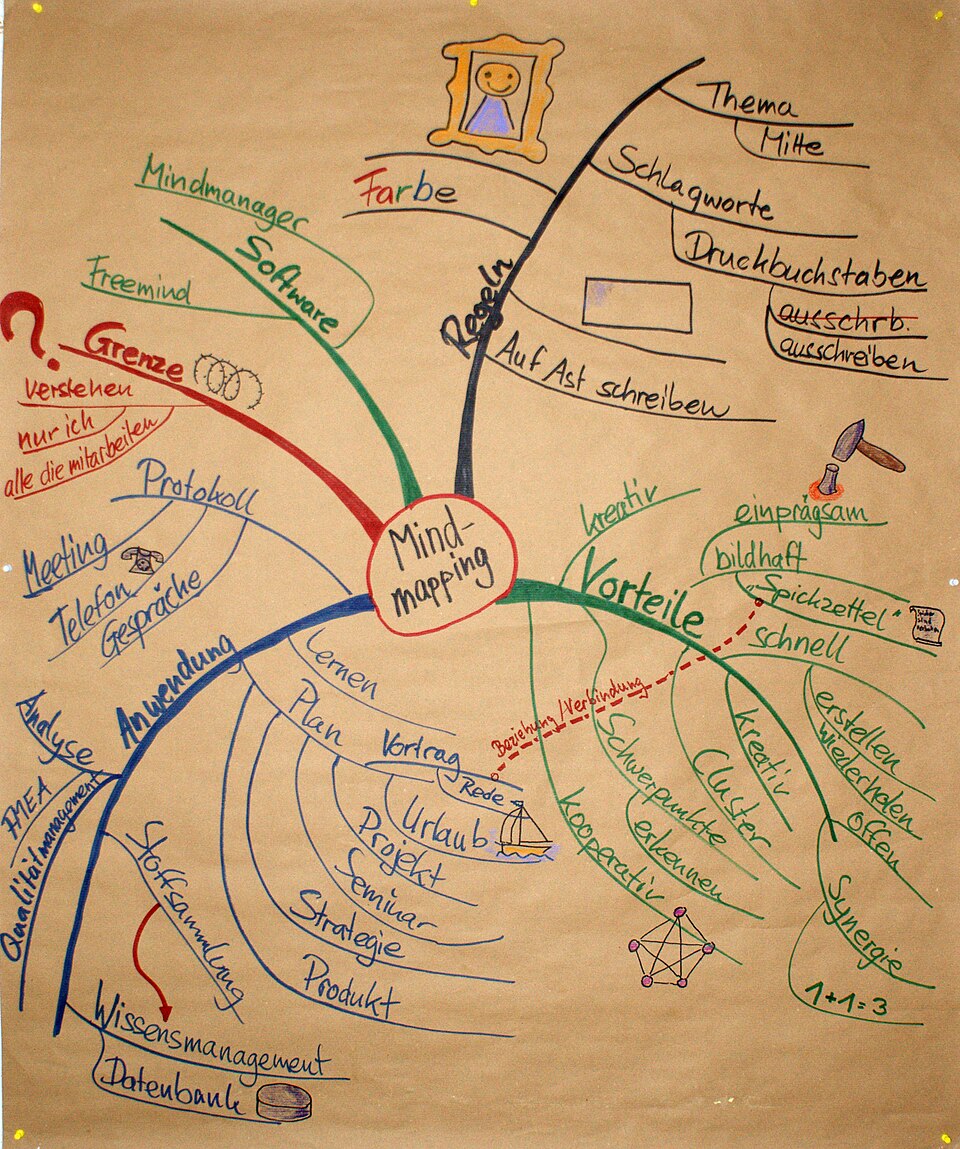 Mind-
mapping
Regeln
Thema
Mitte
Schlagworte
Druckbuchstaben
ausschrb.
ausschreiben
Auf Ast schreiben
Farbe
Software
Mindmanager
Freemind
?
Grenze
verstehen
nur ich
alle die mitarbeiten
Vorteile
kreativ
einprägsam
bildhaft
"Spickzettel"
schnell
erstellen
wiederholen
offen
Synergie
1+1=3
kreativ
Cluster
Schwerpunkte
erkennen
kooperativ
Beziehung/Verbindung
Anwendung
Protokoll
Meeting
Telefon
Gespräche
Lernen
Plan
Vortrag
Rede
Urlaub
Projekt
Seminar
Strategie
Produkt
Analyse
FMEA
Qualitätmanagement
Stoffsammlung
Wissensmanagement
Datenbank